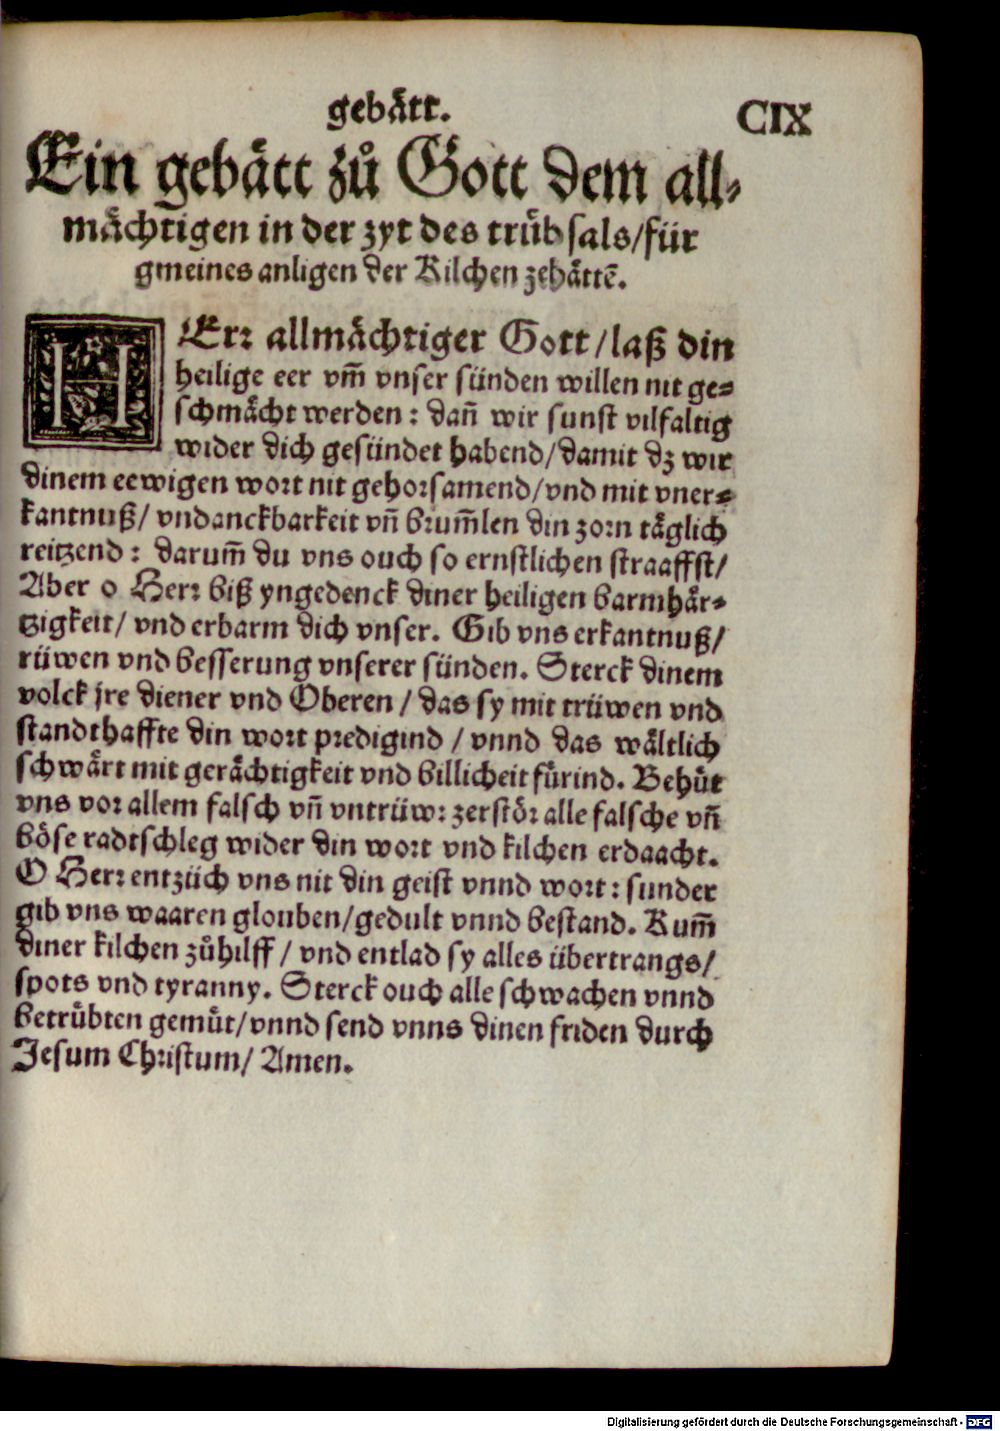 gebätt.
CIX
Ein gebätt zů Gott dem all-
mächtigen in der zyt des trübsals/für
gmeines anligen der Kilchen zebättē.
HErr allmächtiger Gott/laß din
heilige eer vm̄ vnser sünden willen nit ge-
schmächt werden: dan̄ wir sunst vilfaltig
wider dich gesündet habend/damit dz wir
dinem eewigen wort nit gehorsamend/vnd mit vner-
kantnuß/ vndanckbarkeit vn̄ brum̄len din zorn täglich
reitzend: darum̄ du vns ouch so ernstlichen straaffst/
Aber o Herr biß yngedenck diner heiligen barmhär-
tzigkeit/ vnd erbarm dich vnser. Gib vns erkantnuß/
rüwen vnd besserung vnserer sünden. Sterck dinem
volck jre diener vnd Oberen/das sy mit trüwen vnd
standthaffte din wort predigind/vnnd das wältlich
schwärt mit gerächtigkeit vnd billicheit fürind. Behüt
vns vor allem falsch vn̄ vntrüw: zerstör alle falsche vn̄
böse radtschleg wider din wort vnd kilchen erdaacht.
O Herr entzüch vns nit din geist vnnd wort: sunder
gib vns waaren glouben/gedult vnnd bestand. Kum̄
diner kilchen zůhilff/ vnd entlad sy alles übertrangs/
spots vnd tyranny. Sterck ouch alle schwachen vnnd
betrübten gemüt/vnnd send vnns dinen friden durch
Jesum Christum/ Amen.
Digitalisierung gefördert durch die Deutsche Forschungsgemeinschaft - DFG